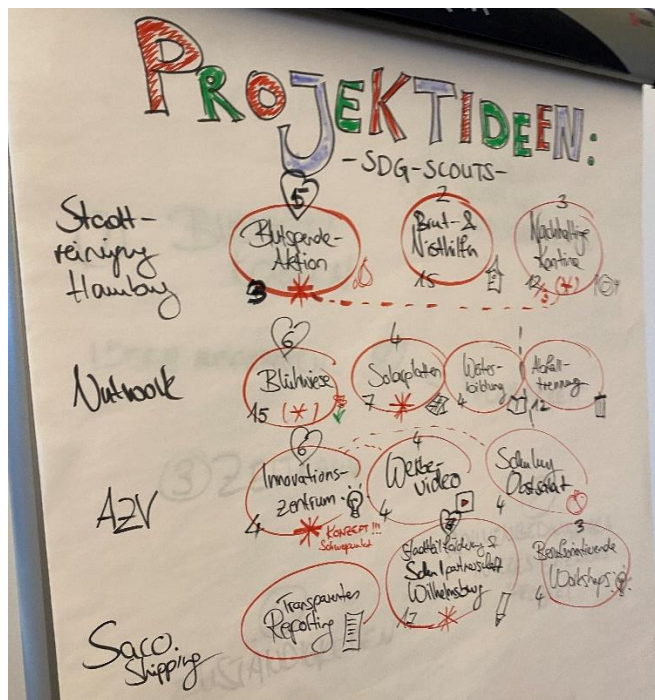 PROJEKTIDEEN:
-SDG-SCOUTS-
Stadt-
reinigung
Hamburg
5
Blutspende-
Aktion
3
2
Brut- &
Nisthilfen
15
3
Nachhaltige
Kantine
12
Nutwork
6
Blühwiese
15 (*)
4
Solarplatten
7
Weiter-
bildung
4
Abfall-
trennung
12
AZV
6
Innovations-
zentrum
4
KONZEPT!!!
Schwerpunkt
4
Werbe-
video
4
Schulung
Obstsalat
4
Saco.
Shipping
Transparentes
Reporting
Schulpartnerschaft
Wilhelmsburg
17
3
Berufsorientierende
Workshops
4